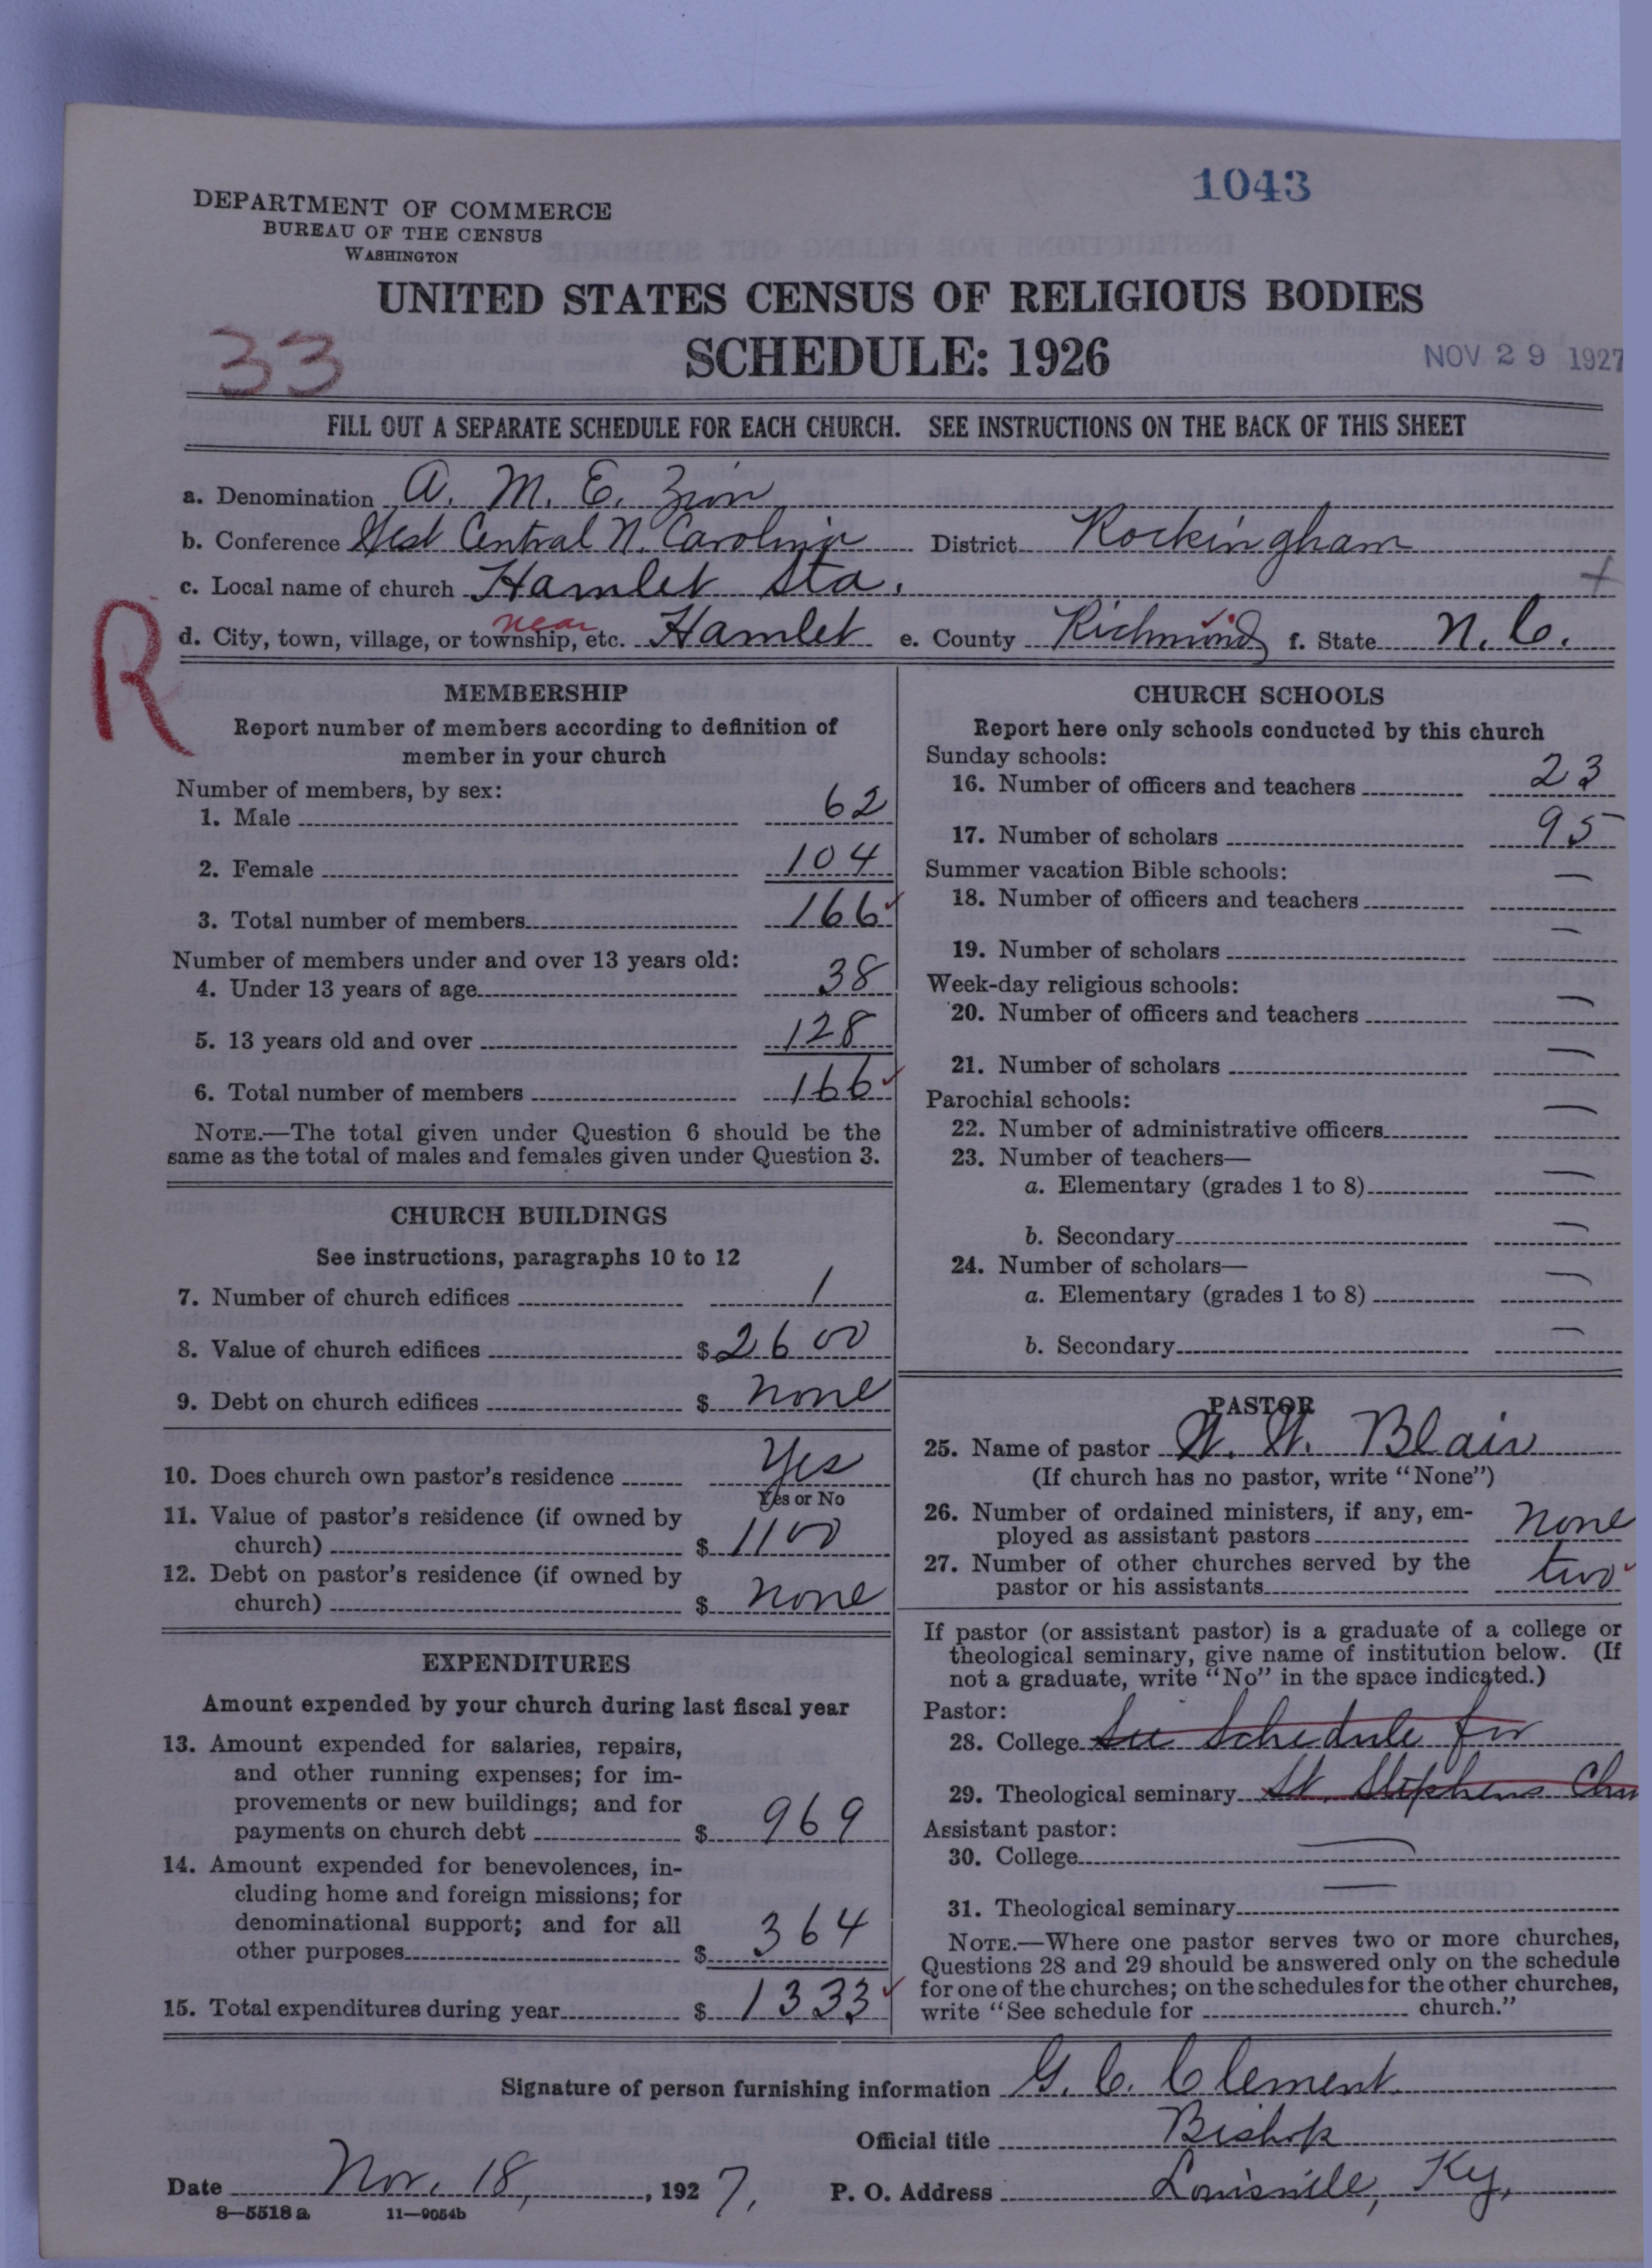 1043
DEPARTMENT OF COMMERCE
BUREAU OF THE CENSUS
WASHINGTON
UNITED STATES CENSUS OF RELIGIOUS BODIES
33
SCHEDULE: 1926
NOV 29 1927
FILL OUT A SEPARATE SCHEDULE FOR EACH CHURCH. SEE INSTRUCTIONS ON THE BACK OF THIS SHEET
a. Denomination A. M. E. Zion
b. Conference West Central N. Carolina District Rockingham
c. Local name of church Hamlet Sta.
near
d. City, town, village, or township, etc. Hamlet e. County Richmond f. State N. C.
R
MEMBERSHIP
Report number of members according to definition of
member in your church
Number of members, by sex:
1. Male 62
2. Female 104
3. Total number of members 166
Number of members under and over 13 years old:
4. Under 13 years of age 38
5. 13 years old and over 128
6. Total number of members 166
NOTE.—The total given under Question 6 should be the
same as the total of males and females given under Question 3.
CHURCH BUILDINGS
See instructions, paragraphs 10 to 12
7. Number of church edifices 1
8. Value of church edifices $ 2600
9. Debt on church edifices $ none
10. Does church own pastor's residence Yes
Yes or No
11. Value of pastor's residence (if owned by
church) $ 1100
12. Debt on pastor's residence (if owned by
church) $ none
EXPENDITURES
Amount expended by your church during last fiscal year
13. Amount expended for salaries, repairs,
and other running expenses; for im-
provements or new buildings; and for
payments on church debt $ 969
14. Amount expended for benevolences, in-
cluding home and foreign missions; for
denominational support; and for all
other purposes $ 364
15. Total expenditures during year $ 1333
CHURCH SCHOOLS
Report here only schools conducted by this church
Sunday schools:
16. Number of officers and teachers 23
17. Number of scholars 95
Summer vacation Bible schools:
18. Number of officers and teachers —
19. Number of scholars —
Week-day religious schools:
20. Number of officers and teachers —
21. Number of scholars —
Parochial schools:
22. Number of administrative officers —
23. Number of teachers—
a. Elementary (grades 1 to 8) —
b. Secondary —
24. Number of scholars—
a. Elementary (grades 1 to 8) —
b. Secondary —
PASTOR
25. Name of pastor W. W. Blair
(If church has no pastor, write "None")
26. Number of ordained ministers, if any, em-
ployed as assistant pastors none
27. Number of other churches served by the
pastor or his assistants two
If pastor (or assistant pastor) is a graduate of a college or
theological seminary, give name of institution below. (If
not a graduate, write "No" in the space indicated.)
Pastor:
28. College See Schedule for
29. Theological seminary St. Stephens Chu
Assistant pastor:
30. College —
31. Theological seminary —
NOTE.—Where one pastor serves two or more churches,
Questions 28 and 29 should be answered only on the schedule
for one of the churches; on the schedules for the other churches,
write "See schedule for church."
Signature of person furnishing information G. C. Clement
Official title Bishop
Date Nov. 18, 1927, P. O. Address Louisville, Ky,
8—5518 a 11—9054b